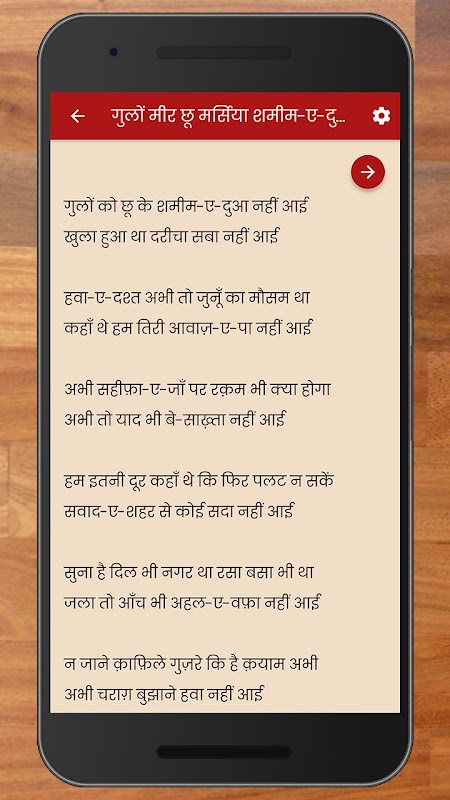 गुलों मीर छू मर्सिया शमीम-ए-दु...
गुलों को छू के शमीम-ए-दुआ नहीं आई
खुला हुआ था दरीचा सबा नहीं आई
हवा-ए-दश्त अभी तो जुनूँ का मौसम था
कहाँ थे हम तिरी आवाज़-ए-पा नहीं आई
अभी सहीफ़ा-ए-जाँ पर रक़म भी क्या होगा
अभी तो याद भी बे-साख़्ता नहीं आई
हम इतनी दूर कहाँ थे कि फिर पलट न सकें
सवाद-ए-शहर से कोई सदा नहीं आई
सुना है दिल भी नगर था रसा बसा भी था
जला तो आँच भी अहल-ए-वफ़ा नहीं आई
न जाने क़ाफ़िले गुज़रे कि है क़याम अभी
अभी चराग़ बुझाने हवा नहीं आई